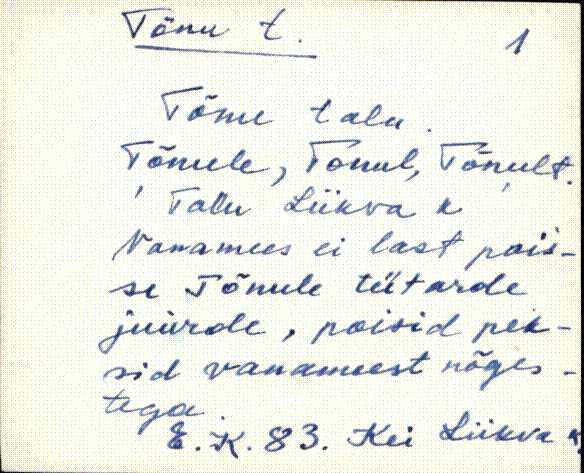 Tõnu t.
1
Tõnu talu.
Tõnule, Tõnul, Tõnult.
Talu Liikva k
Vanamees ei last pois-
se Tõnule tütarde
juurde, poisid pek-
sid vanameest nõges-
tega.
E.K. 83. Kei Liikva k